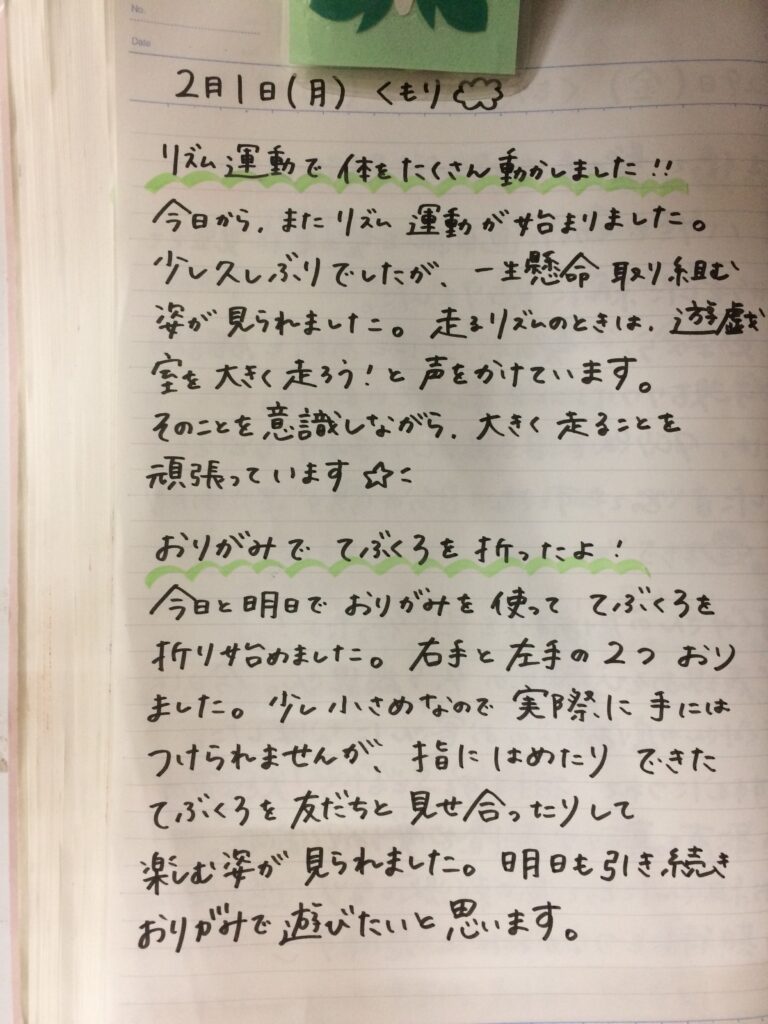 No.
Date
2月1日(月) くもり
リズム運動で体をたくさん動かしました!!
今日から、またリズム運動が始まりました。
少し久しぶりでしたが、一生懸命取り組む
姿が見られました。走るリズムのときは、遊戯
室を大きく走ろう!と声をかけています。
そのことを意識しながら、大きく走ることを
頑張っています☆
おりがみで てぶくろを折ったよ!
今日と明日でおりがみを使って てぶくろを
折り始めました。右手と左手の2つ おり
ました。少し小さめなので実際に手には
つけられませんが、指にはめたり できた
てぶくろを友だちと見せ合ったりして
楽しむ姿が見られました。明日も引き続き
おりがみで遊びたいと思います。